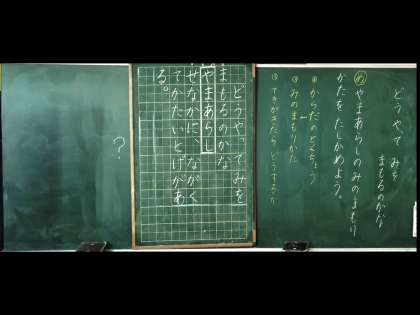 どうやって みを
まもるのかな
め やまあらしのみのまもり
かたを たしかめよう。
からだのとくちょう
みのまもりかた
てきがきたら どうするか
どうやってみを
まもるのかな
やまあらし
せなかに、ながく
てかたいとげがあ
る。
?